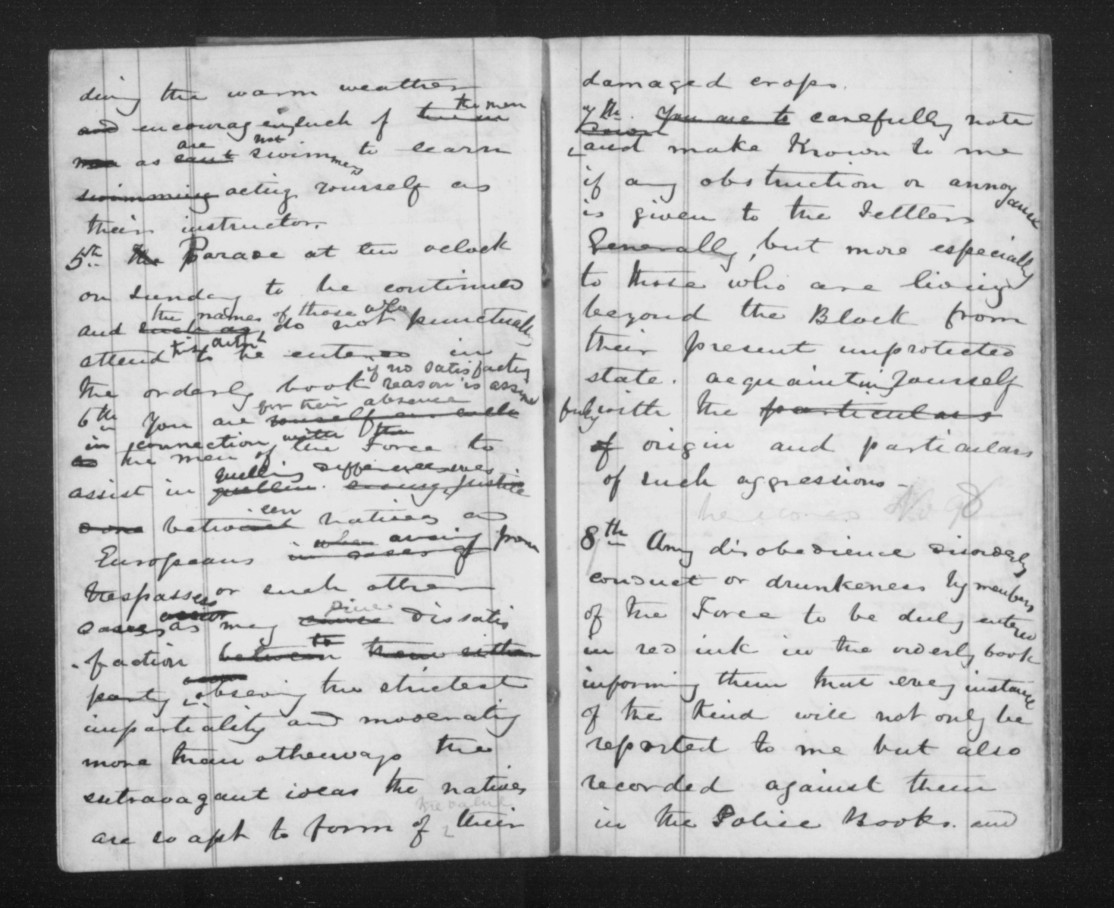 during the warm weather
and encouraging such of them the men
men as are cant not swimmers to learn
swimming acting yourself as
their instructor.
5th. The Parade at ten oclock
on Sunday to be continued
and the names of those who such as do not punctually
attend to be entered in
the orderly book if no satisfactory reason is assigned
for their absence
6th You are
in connection with the
to the men of the Force to
assist in quelling differences
done between natives and
Europeans when arising from in cases of
trespasses or such other
cases as may cause give dissatis
faction between to them either
party observing the strictest
impartiality and moderating
more than otherways the
extravagant ideas the natives
are so apt to form of the value their
damaged crops.
7th. You are to carefully note
and make known to me
if any obstruction or annoyance
is given to the Settlers
Generally, but more especially
to those who are living
beyond the Block from
their present unprotected
state. acquainting yourself
fully with the particulars
of origin and particulars
of such aggressions—
No 98
8th Any disobedience disorderly
conduct or drunkeness by members
of the Force to be duly entered
in red ink in the orderly book
informing them that every instance
of the kind will not only be
reported to me but also
recorded against them
in the Police Books. and